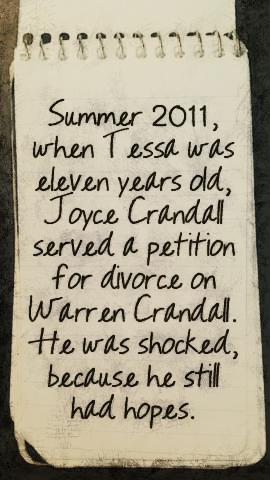 Summer 2011,
when Tessa was
eleven years old,
Joyce Crandall
served a petition
for divorce on
Warren Crandall.
He was shocked,
because he still
had hopes.